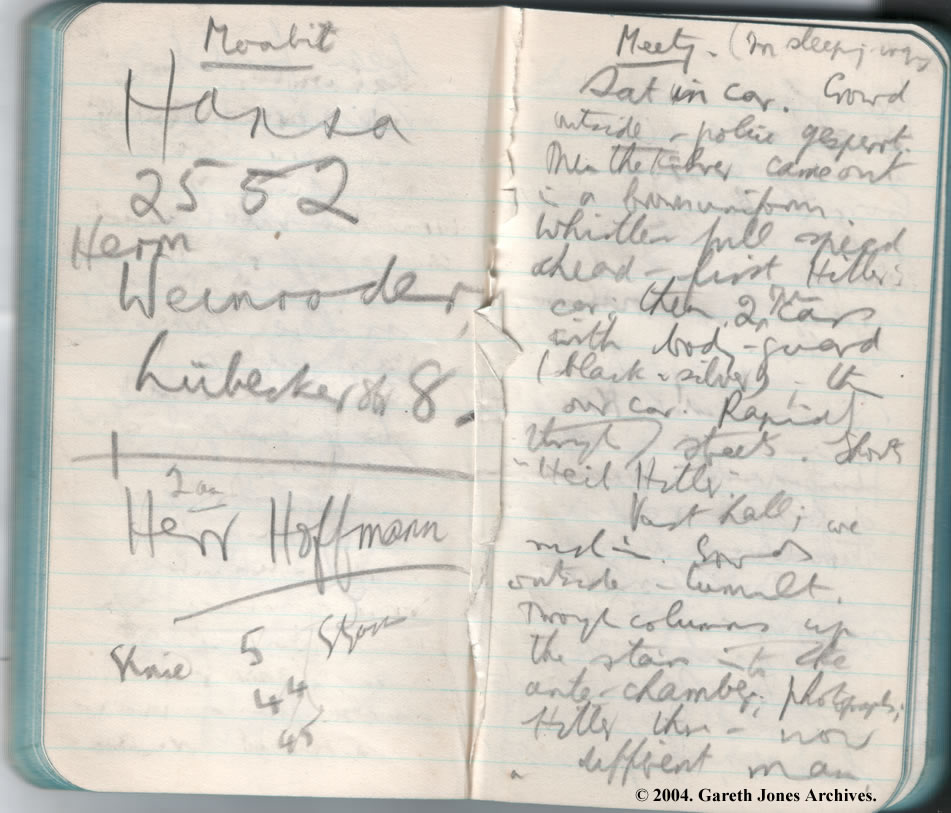 Moabit
Hansa
2552
Herrn
Weinroder,
Lübeckerstr 8.
Herr Hoffmann
5
44
45
Meetg. (In sleeping
Sat in car. Crowd
outside - police gesperrt.
Then the Führer came out
in a brown uniform.
Whistle. full speed
ahead - first Hitler's
car, then 2 cars
with body-guard
(black & silver) - then
our car. Rapidly
through streets. Shouts
"Heil Hitler".
Vast hall; we
rush in. Crowds
outside - tumult.
Through columns up
the stairs into the
ante-chamber; photographs;
Hitler there - now
different man
© 2004. Gareth Jones Archives.